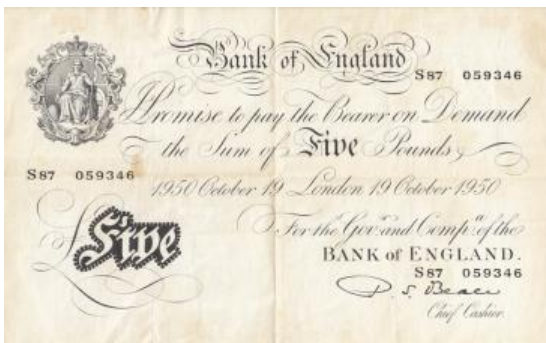 Bank of England
S87 059346
I Promise to pay the Bearer on Demand
the Sum of Five Pounds
S87 059346
1950 October 19 London 19 October 1950
For the Govr. and Compa. of the
Five
BANK of ENGLAND.
S87 059346
P. S. Beale
Chief Cashier.